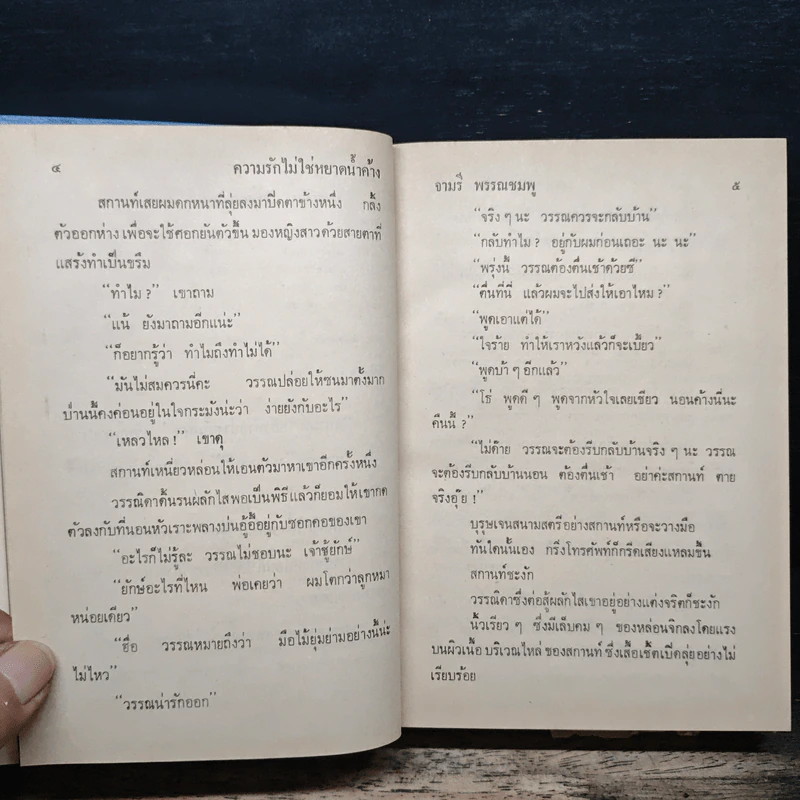 ๔ ความรักไม่ใช่หยาดน้ำค้าง
สกานท์เสยผมดกหนาที่ลุ่ยลงมาปิดตาข้างหนึ่ง กลิ้ง
ตัวออกห่าง เพื่อจะใช้ศอกยันตัวขึ้น มองหญิงสาวด้วยสายตาที่
แสร้งทำเป็นขรึม
“ทำไม ?” เขาถาม
“แน้ ยังมาถามอีกแน่ะ”
“ก็อยากรู้ว่า ทำไมถึงทำไม่ได้”
“มันไม่สมควรนี่คะ วรรณปล่อยให้ซนมาตั้งมาก
ป่านนี้คงค่อนอยู่ในใจกระมังน่ะว่า ง่ายยังกับอะไร”
“เหลวไหล !” เขาดุ
สกานท์เหนี่ยวหล่อนให้เอนตัวมาหาเขาอีกครั้งหนึ่ง
วรรณิดาดิ้นรนผลักไสพอเป็นพิธีแล้วก็ยอมให้เขากด
ตัวลงกับที่นอนหัวเราะพลางบ่นอู้อี้อยู่กับซอกคอของเขา
“อะไรก็ไม่รู้ละ วรรณไม่ชอบนะ เจ้าชู้ยักษ์”
“ยักษ์อะไรที่ไหน พ่อเคยว่า ผมโตกว่าลูกหมา
หน่อยเดียว”
“ฮื่อ วรรณหมายถึงว่า มือไม้ยุ่มย่ามอย่างนี้น่ะ
ไม่ไหว”
“วรรณน่ารักออก”
จามรี พรรณชมพู ๕
“จริง ๆ นะ วรรณควรจะกลับบ้าน”
“กลับทำไม ? อยู่กับผมก่อนเถอะ นะ นะ”
“พรุ่งนี้ วรรณต้องตื่นเช้าด้วยซี”
“ตื่นที่นี่ แล้วผมจะไปส่งให้เอาไหม ?”
“พูดเอาแต่ได้”
“ใจร้าย ทำให้เราหวังแล้วก็จะเบี้ยว”
“พูดบ้า ๆ อีกแล้ว”
“โธ่ พูดดี ๆ พูดจากหัวใจเลยเชียว นอนค้างนี่นะ
คืนนี้ ?”
“ไม่ค๊าย วรรณจะต้องรีบกลับบ้านจริง ๆ นะ วรรณ
จะต้องรีบกลับบ้านนอน ต้องตื่นเช้า อย่าค่ะสกานท์ ตาย
จริงอุ๊ย !”
บุรุษเจนสนามสตรีอย่างสกานท์หรือจะวางมือ
ทันใดนั้นเอง กริ่งโทรศัพท์ก็กรีดเสียงแหลมขึ้น
สกานท์ชะงัก
วรรณิดาซึ่งต่อสู้ผลักไสเขาอยู่อย่างแต่งจริตก็ชะงัก
นิ้วเรียว ๆ ซึ่งมีเล็บคม ๆ ของหล่อนจิกลงโดยแรง
บนผิวเนื้อ บริเวณไหล่ ของสกานท์ ซึ่งเสื้อเชิ้ตเปิดลุ่ยอย่างไม่
เรียบร้อย